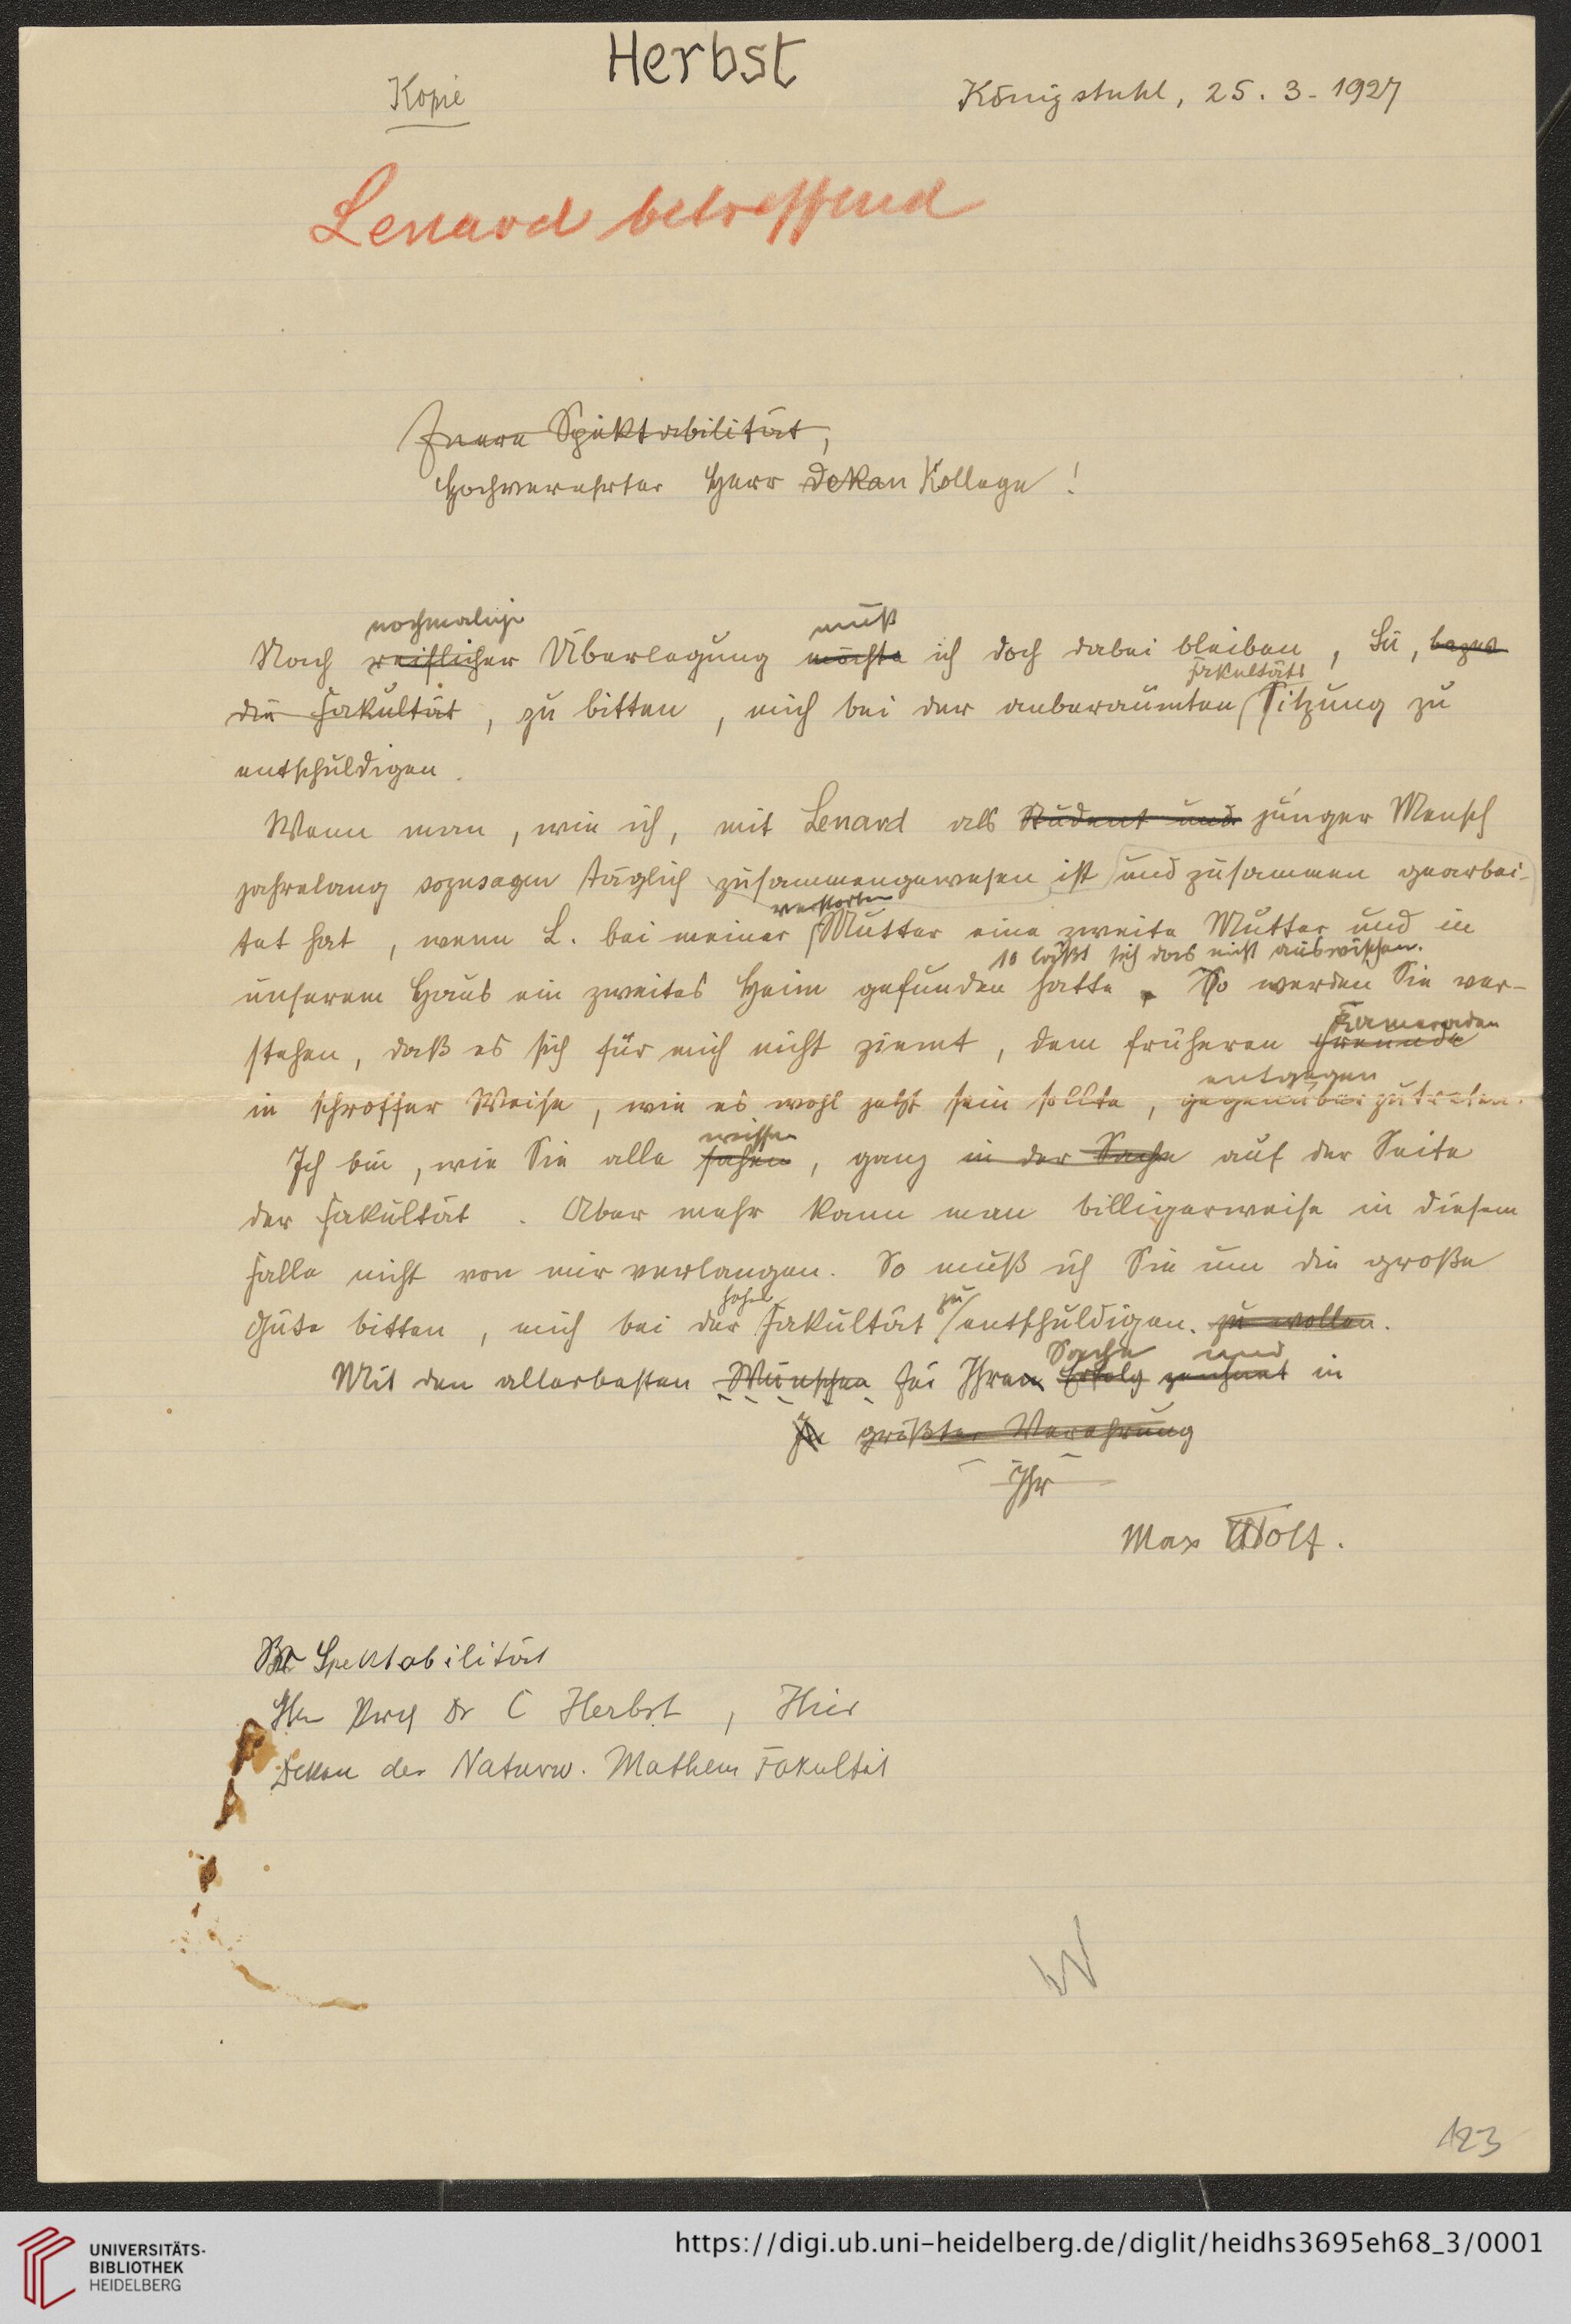 Herbst
Kopie
Königstuhl, 25. 3. 1927
Lenard betreffend
Euere Spektabilität,
Hochverehrter Herr Dekan Kollege!
nochmaliger muß
Nach reiflicher Überlegung möchte ich doch dabei bleiben, Sie, bezw
Fakultäts
die Fakultät, zu bitten, mich bei der anberaumten Sitzung zu
entschuldigen.
Wenn man, wie ich, mit Lenard als Student und junger Mensch
jahrelang sozusagen täglich zusammengewesen ist und zusammen gearbei-
verstorbenen
tet hat, wenn L. bei meiner Mutter eine zweite Mutter und in
so läßt sich das nicht auswischen.
unserem Haus ein zweites Heim gefunden hatte. So werden Sie ver-
Kameraden
stehen, daß es sich für mich nicht ziemt, dem früheren Freunde
entgegen
in schroffer Weise, wie es wohl jetzt sein sollte, gegenüber zutreten.
wissen
Ich bin, wie Sie alle sahen, ganz in der Sache auf der Seite
der Fakultät. Aber mehr kann man billigerweise in diesem
Falle nicht von mir verlangen. So muß ich Sie um die große
hohen zu
Güte bitten, mich bei der Fakultät entschuldigen. zu wollen.
Sache und
Mit den allerbesten Wünschen für Ihren Erfolg zeichnet in
größter Verehrung
Ihr
Max Wolf.
Spektabilität
Hrn Prof Dr C Herbst, Hier
Dekan der Naturw. Mathem Fakultät
W
123
UNIVERSITÄTS-
BIBLIOTHEK
HEIDELBERG
https://digi.ub.uni-heidelberg.de/diglit/heidhs3695eh68_3/0001